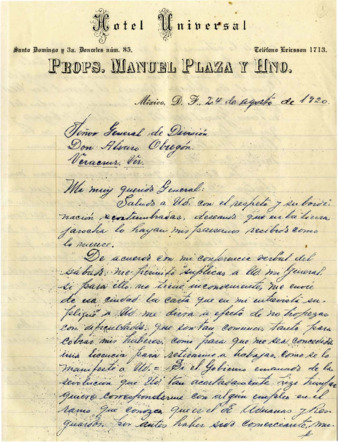 Hotel Universal
Santo Domingo y 3a. Donceles núm. 85.
Teléfono Ericsson 1713.
PROPS. MANUEL PLAZA Y HNO.
México, D. F., 24 de agosto de 1920.
Señor General de División
Don Alvaro Obregón
Veracruz, Ver.
Mi muy querido General:
Saludo a Ud. con el respeto y subordi
nación acostumbradas, deseando que en la tierra
jarocha lo hayan mis paisanos recibido como
lo merece.
De acuerdo con mi conferencia verbal del
sábado, me permito suplicar a Ud. mi General
si para ello no tiene inconveniente, me envíe
de esa ciudad la carta que en mi entrevista su-
pliqué a Ud. me diera a efecto de no tropezar
con dificultades, que son tan comunes tanto para
cobrar mis haberes como para que me sea concedida
una licencia para retirarme a trabajar como se lo
manifesté a Ud. = Si el Gobierno emanado de la
revolución que Ud. tan acertadamente hizo triunfar
quiere corresponderme con algún empleo en el
ramo que conozco que es el de Aduanas y Res
guardos por antes haber sido comerciante, me